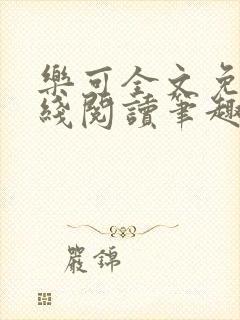 樂可全文免
綫閱讀筆趣
嚴錦